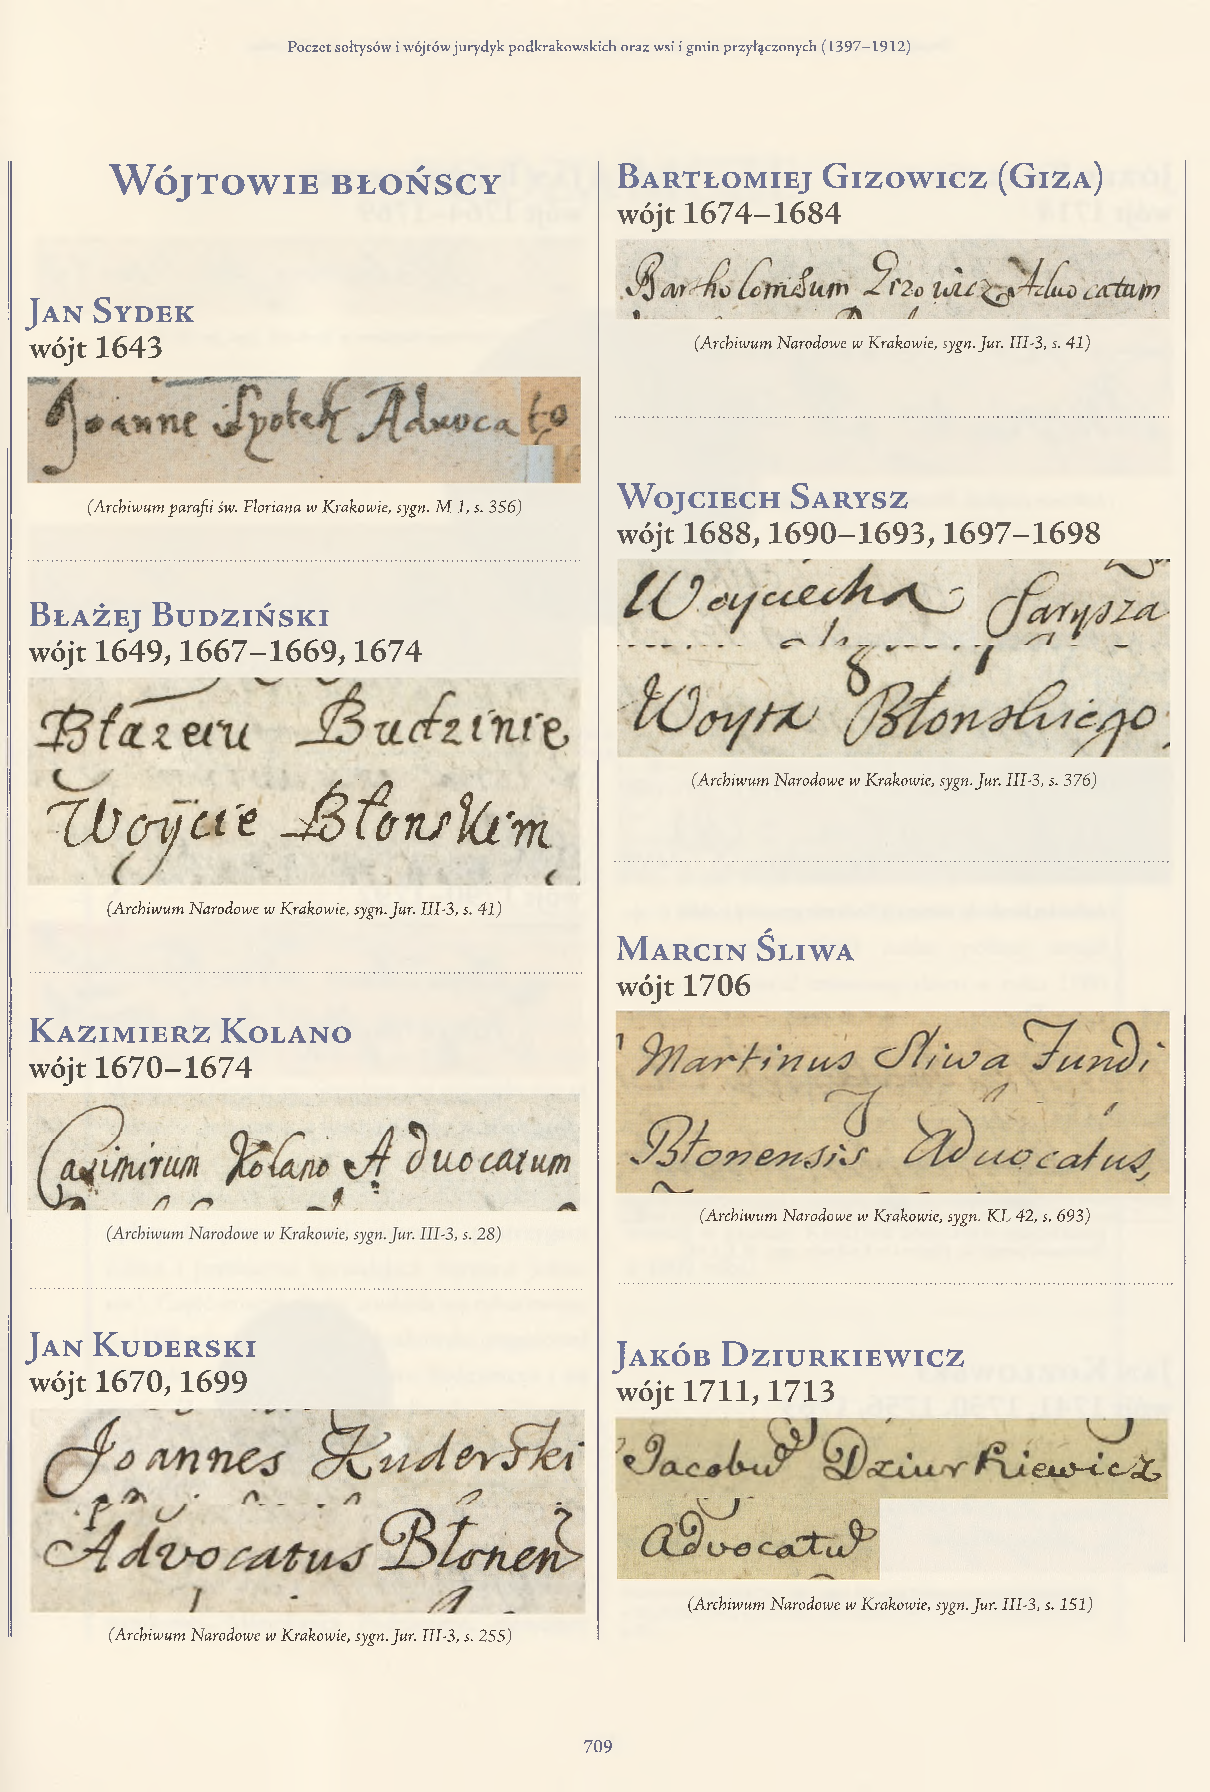 Poczet sołtysów i wójtów jurydyk podkrakowskich oraz wsi i gmin przyłączonych (1397–1912)
Wójtowie błońscy
Jan Sydek
wójt 1643
Joanne Spotek Advocato
(Archiwum parafii św. Floriana w Krakowie, sygn. M 1, s. 356)
Błażej Budziński
wójt 1649, 1667–1669, 1674
Błazeiu Budzinie
Woycie Błonskim
(Archiwum Narodowe w Krakowie, sygn. Jur. III-3, s. 41)
Kazimierz Kolano
wójt 1670–1674
Casimirum Kolano Advocatum
(Archiwum Narodowe w Krakowie, sygn. Jur. III-3, s. 28)
Jan Kuderski
wójt 1670, 1699
Joannes Kuderski
Advocatus Błonen
(Archiwum Narodowe w Krakowie, sygn. Jur. III-3, s. 255)
Bartłomiej Gizowicz (Giza)
wójt 1674–1684
Bartholomeum Gizowicz Advocatum
(Archiwum Narodowe w Krakowie, sygn. Jur. III-3, s. 41)
Wojciech Sarysz
wójt 1688, 1690–1693, 1697–1698
Woyciecha Sarysza
Woyta Błonskiego
(Archiwum Narodowe w Krakowie, sygn. Jur. III-3, s. 376)
Marcin Śliwa
wójt 1706
Martinus Sliwa Fundi
Błonensis Advocatus,
(Archiwum Narodowe w Krakowie, sygn. KL 42, s. 693)
Jakób Dziurkiewicz
wójt 1711, 1713
Jacobus Dziurkiewicz
Advocatus
(Archiwum Narodowe w Krakowie, sygn. Jur. III-3, s. 151)
709